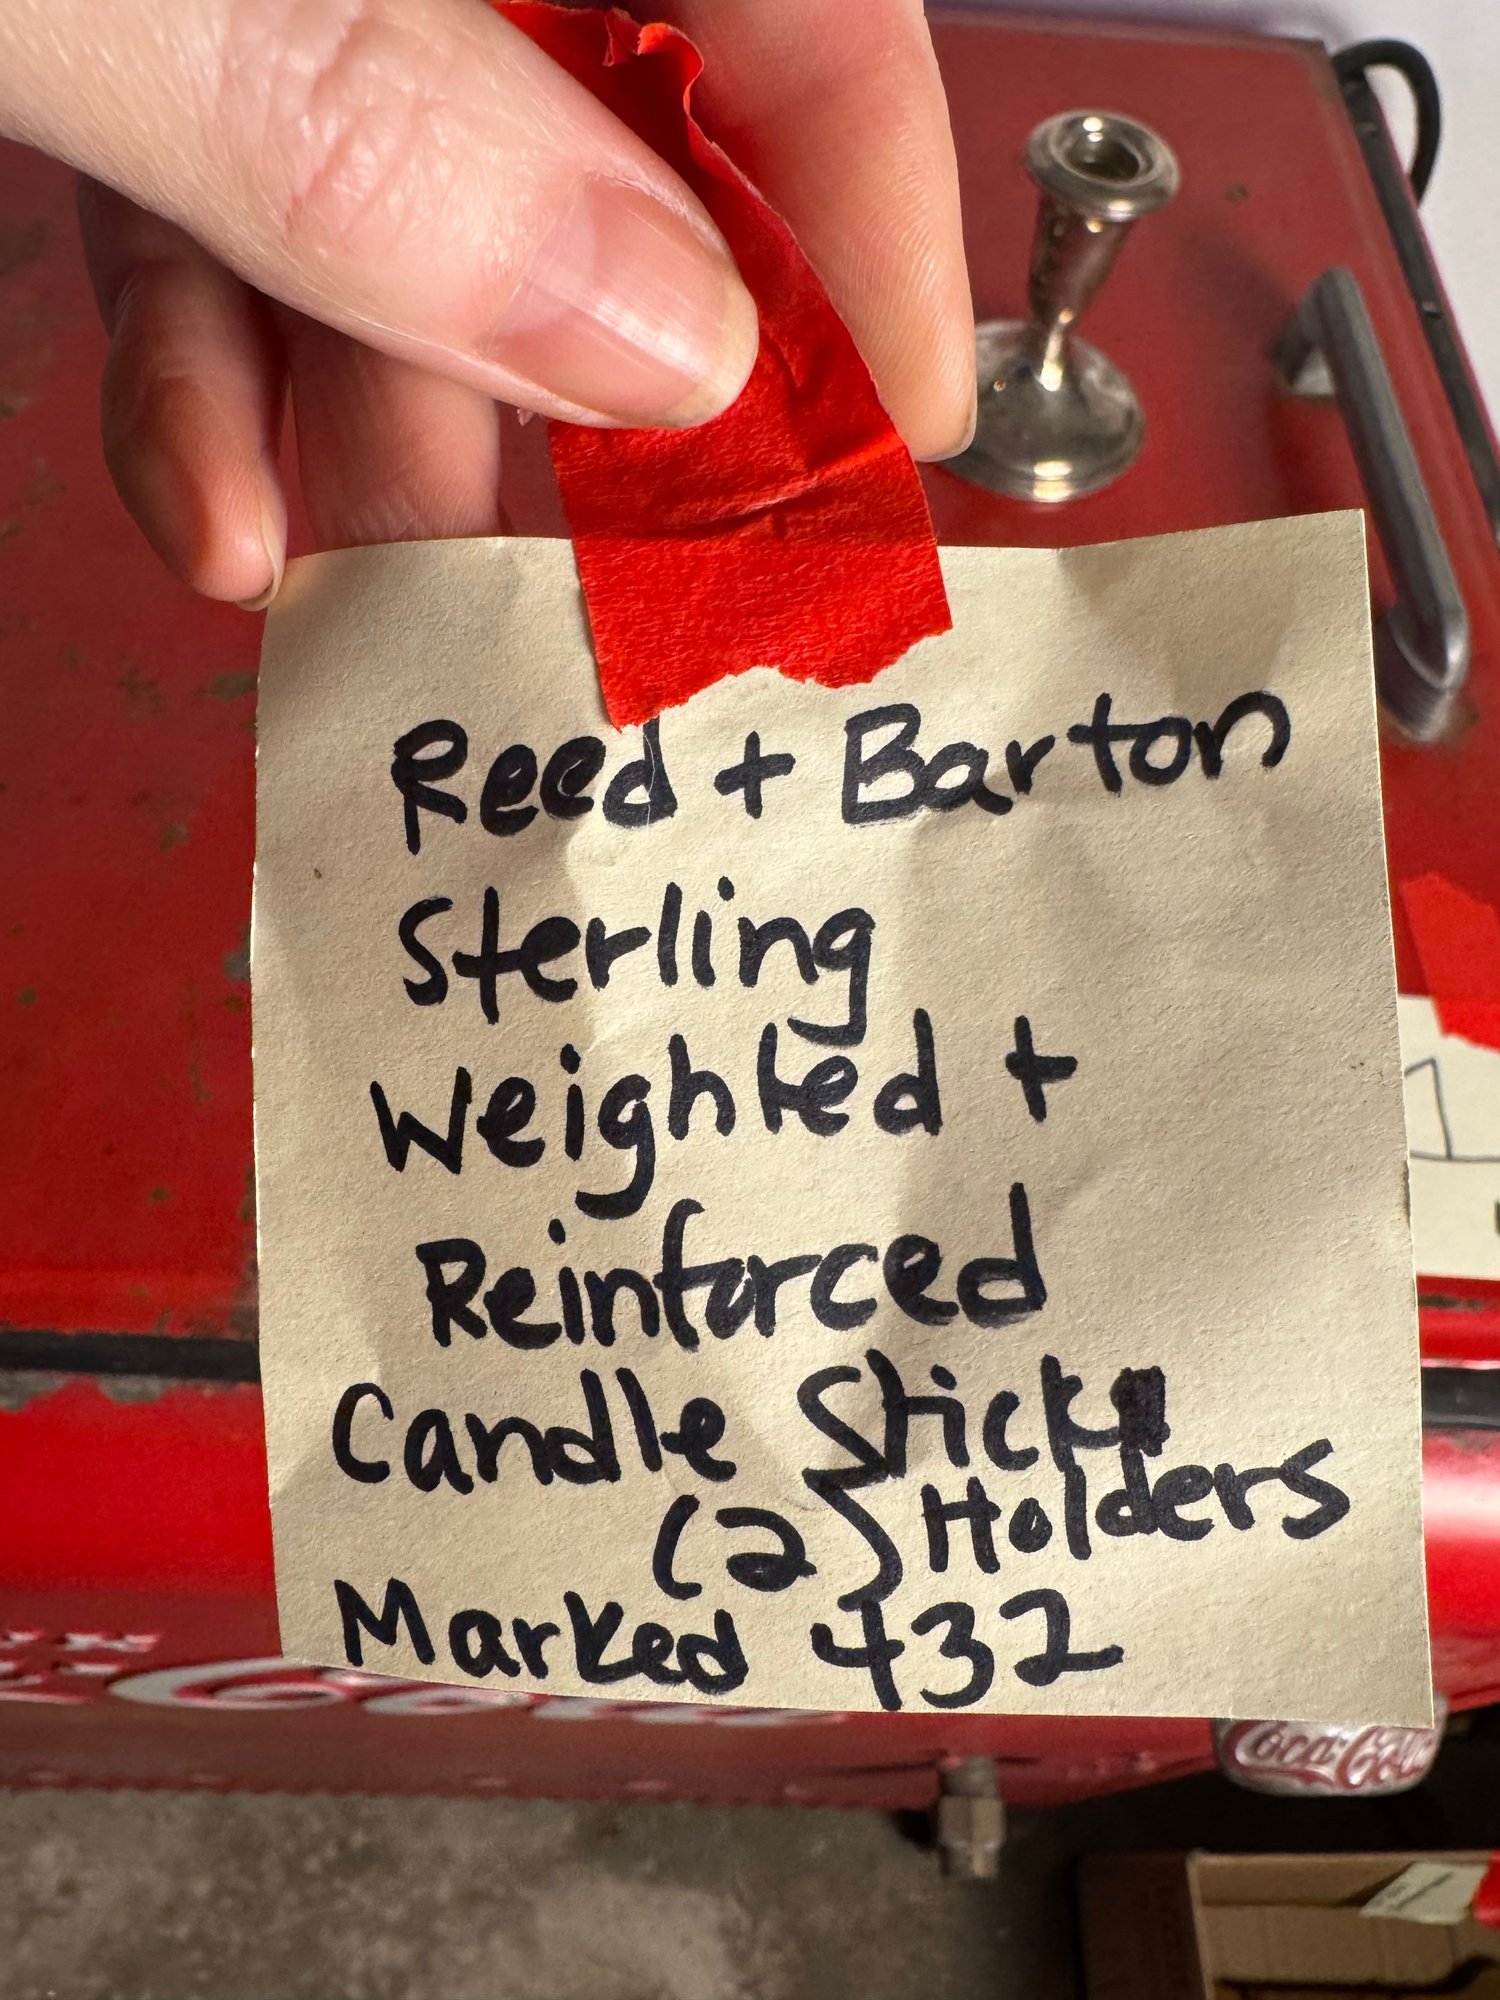 Reed + Barton
Sterling
Weighted +
Reinforced
Candle Stick
(2) Holders
Marked 432
Coca-Cola